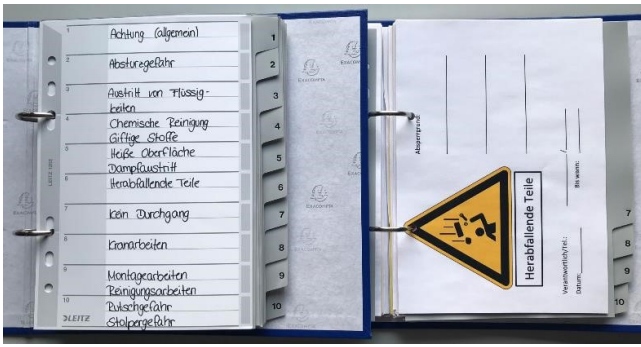 1 Achtung (allgemein)
2 Absturzgefahr
3 Austritt von Flüssig-
keiten
4 Chemische Reinigung
Giftige Stoffe
5 Heiße Oberfläche
Dampfaustritt
6 Herabfallende Teile
7 Kein Durchgang
8 Kranarbeiten
9 Montagearbeiten
Reinigungsarbeiten
10 Rutschgefahr
Stolpergefahr
LEITZ
1
2
3
4
5
6
7
8
9
10
EXACOMPTA
Absperrgrund:
Herabfallende Teile
Verantwortlich/Tel.: /
Datum: Bis wann:
7
8
9
10